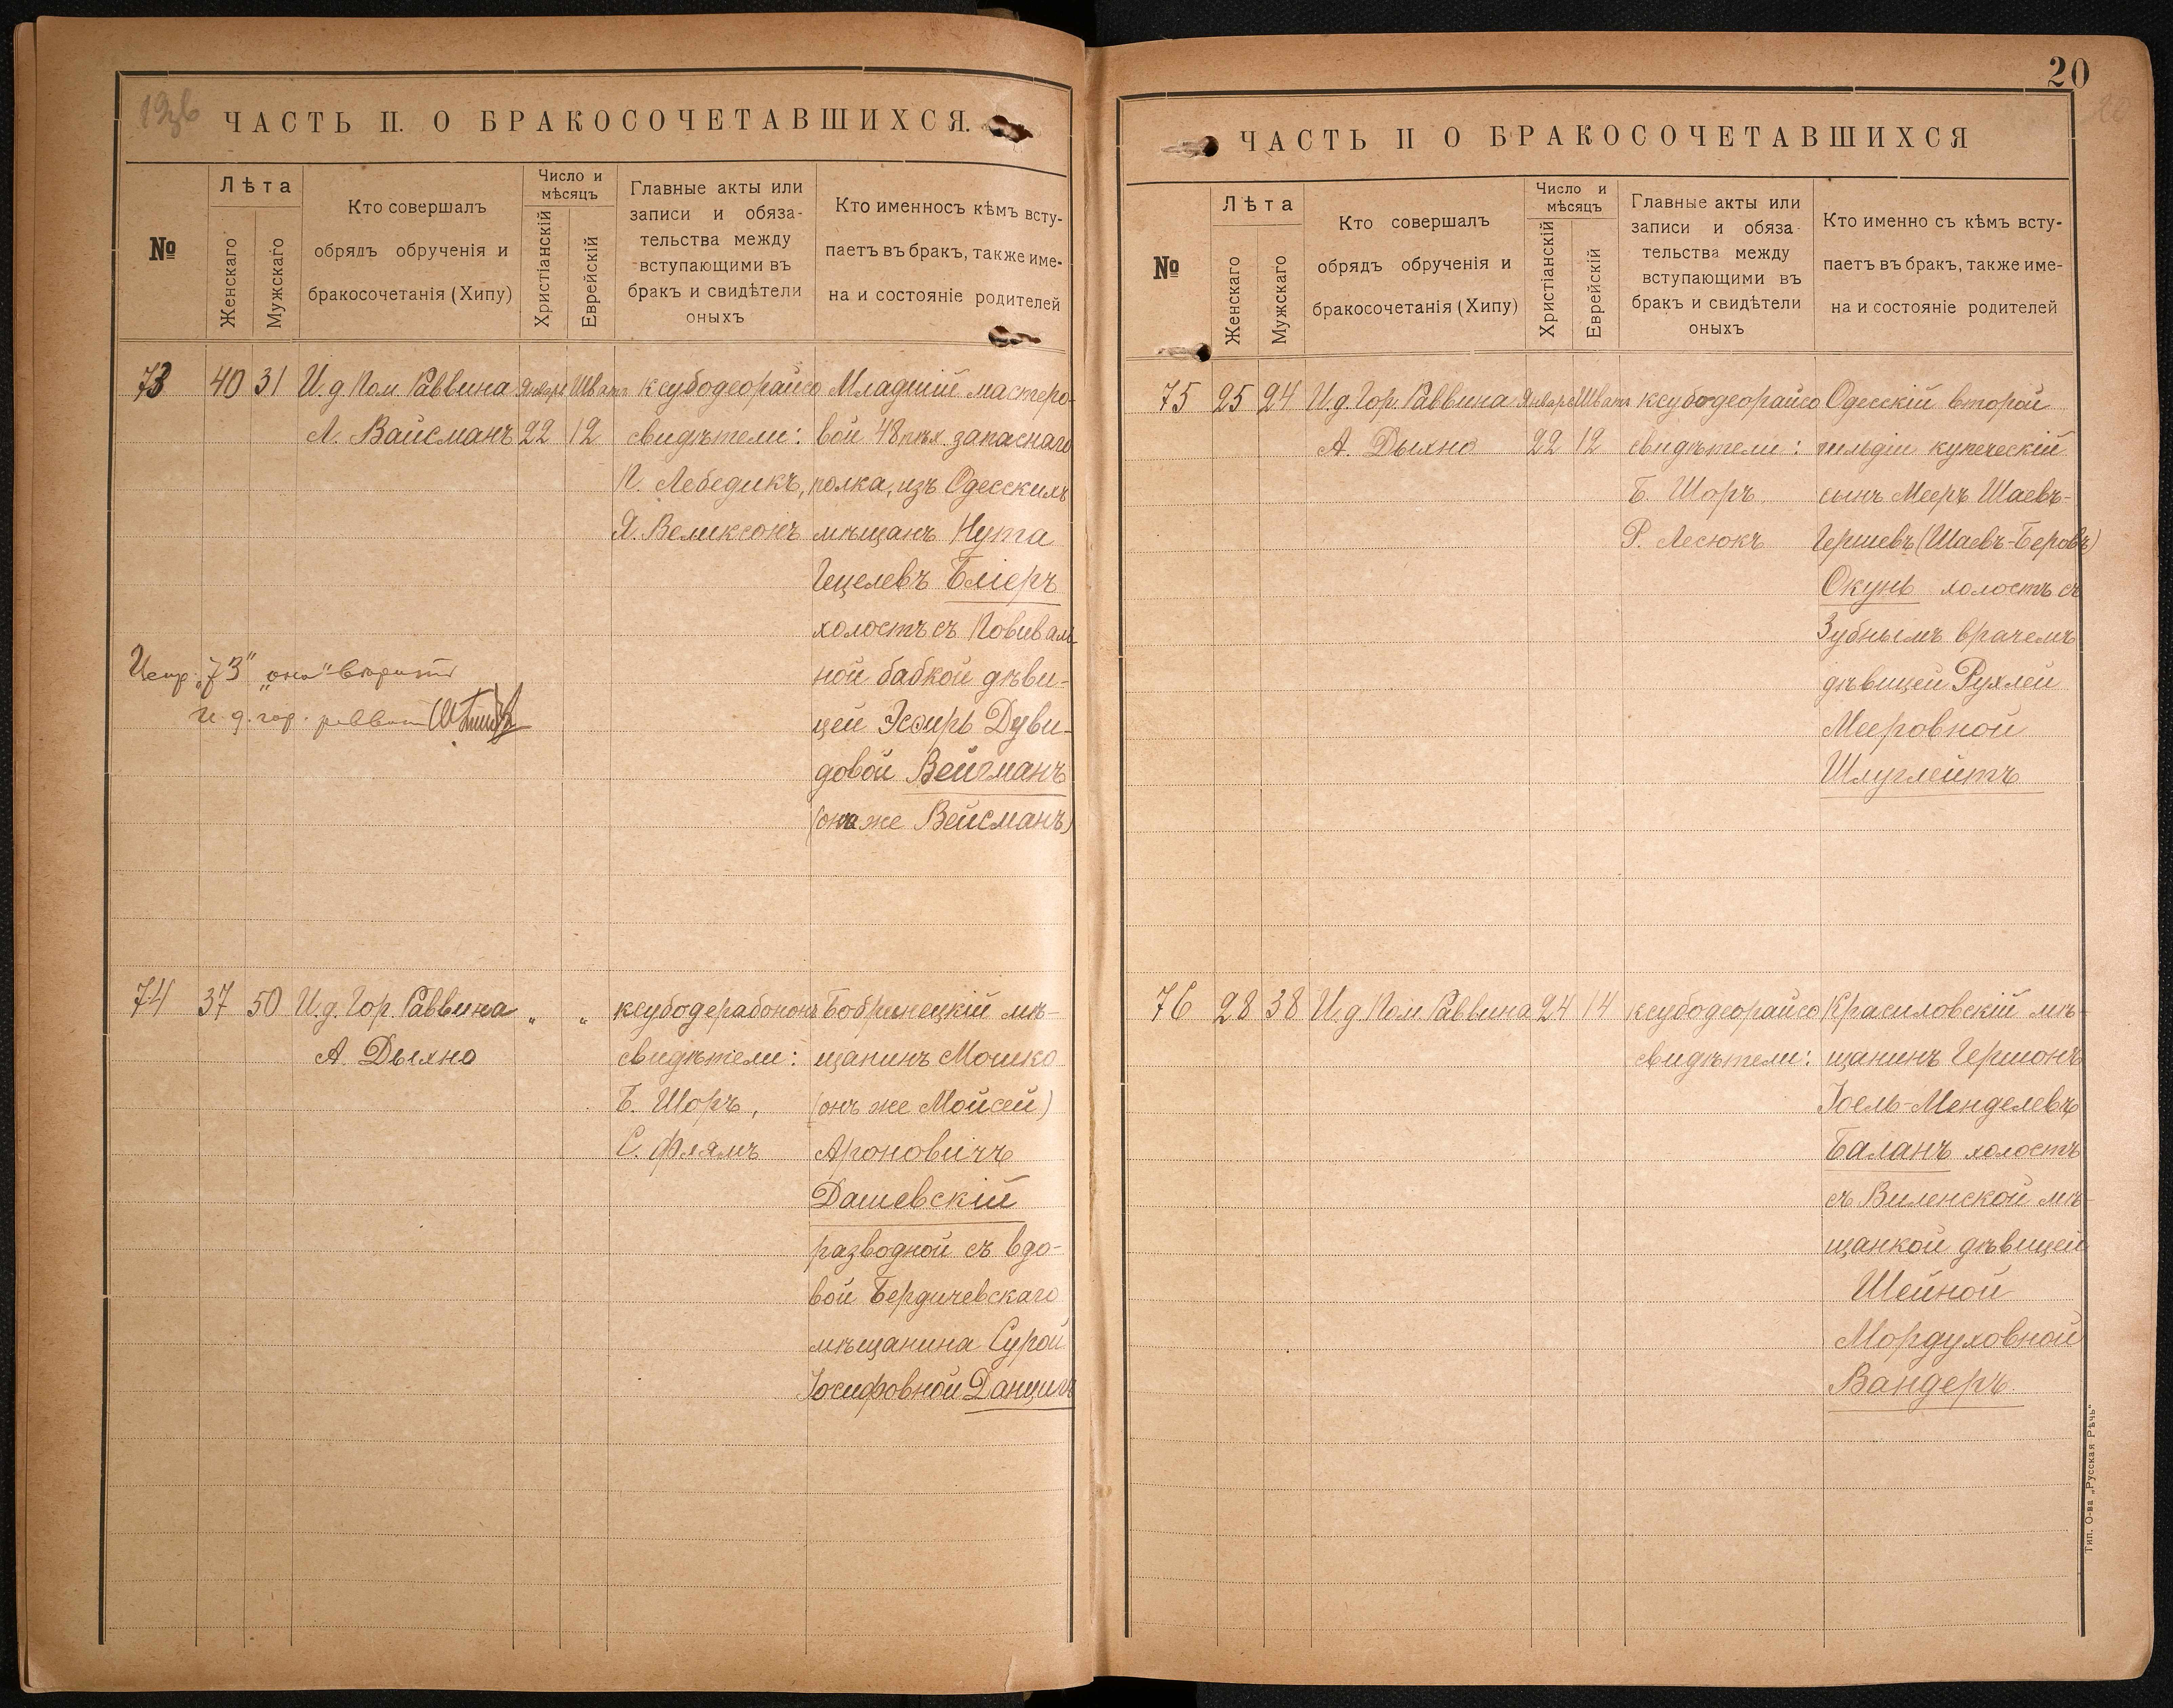 ЧАСТЬ II. О БРАКОСОЧЕТАВШИХСЯ.
№
Лѣта
Женскаго
Мужскаго
Кто совершалъ
обрядъ обрученія и
бракосочетанія (Хипу)
Число и
мѣсяцъ
Христіанскій
Еврейскій
Главные акты или
записи и обяза-
тельства между
вступающими въ
бракъ и свидѣтели
оныхъ
Кто именносъ кѣмъ всту-
паетъ въ бракъ, также име-
на и состояніе родителей
73 40 31
И. д Пом. Раввина
Л. Вайсманъ
Январь Шватъ
22 12
ксубодеорайсо
свидѣтели:
П. Лебедикъ,
Я. Великсонъ
Младшій мастеро-
вой 48 пѣх. запаснаго
полка, изъ Одесскихъ
мѣщанъ Нута
Гецелевъ Бліеръ
холостъ съ Повиваль-
ной бабкой дѣви-
цей Эсѳирь Дуви-
довой Вейгманъ
(она же Вейсманъ)
Испр. „73" „она" вѣрить
И. д. гор. раввина
74 37 50
И. д. Гор. Раввина
А. Дыхно
„ „
ксубодерабононъ
свидѣтели:
Б. Шоръ,
С. Флямъ
Бобринецкій мѣ-
щанинъ Мошко
(онъ же Мойсей)
Ароновичъ
Дашевскій
разводной съ вдо-
вой Бердичевскаго
мѣщанина Сурой
Іосифовной Данцигъ
20
ЧАСТЬ II О БРАКОСОЧЕТАВШИХСЯ
№
Лѣта
Женскаго
Мужскаго
Кто совершалъ
обрядъ обрученія и
бракосочетанія (Хипу)
Число и
мѣсяцъ
Христіанскій
Еврейскій
Главные акты или
записи и обяза-
тельства между
вступающими въ
бракъ и свидѣтели
оныхъ
Кто именно съ кѣмъ всту-
паетъ въ бракъ, также име-
на и состояніе родителей
75 25 24
И. д Гор. Раввина
А. Дыхно
Январь Шватъ
22 12
ксубодеорайсо
свидѣтели:
Б. Шоръ
Р. Лесюкъ
Одесскій второй
гильдіи купеческій
сынъ Мееръ Шаевъ-
Гершевъ (Шаевъ-Беровъ)
Окунь холостъ съ
Зубнымъ врачемъ
дѣвицей Рухлей
Мееровной
Шлуглейтъ
76 28 38
И. д Пом Раввина
24 14
ксубодеорайсо
свидѣтели:
Красиловскій мѣ-
щанинъ Гершонъ
Іоель-Менделевъ
Баланъ холостъ
съ Виленской мѣ-
щанкой дѣвицей
Шейной
Мордуховной
Вандеръ
Гип. О-ва „Русская Рѣчь"